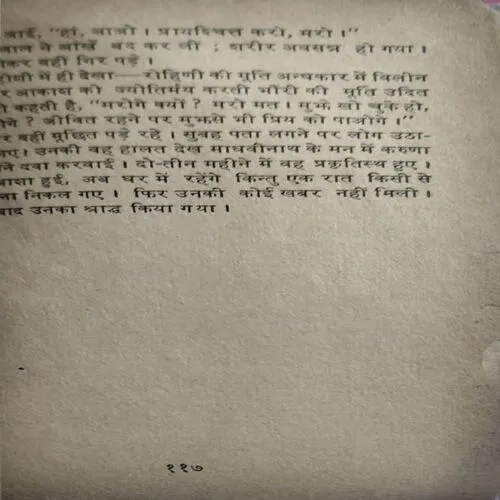 आई, "हां, आओ । प्रायश्चित्त करो, मरो ।"
ने आँखें बंद कर लीं ; शरीर अवसन्न हो गया ।
होकर वहीं गिर पड़े ।
में ही देखा—रोहिणी की मूर्ति अन्धकार में विलीन
आकाश को ज्योतिर्मय करती भौंरी की मूर्ति उदित
कहती है, "मरोगे क्यों ? मरो मत । मुझे खो चुके हो,
? जीवित रहने पर मुझसे भी प्रिय को पाओगे ।"
वहीं मूर्छित पड़े रहे । सुबह पता लगने पर लोग उठा-
गए। उनकी वह हालत देख माधवीनाथ के मन में करुणा
दवा करवाई । दो-तीन महीने में वह प्रकृतिस्थ हुए ।
आशा हुई, अब घर में रहेंगे किन्तु एक रात किसी से
निकल गए । फिर उनकी कोई खबर नहीं मिली ।
बाद उनका श्राद्ध किया गया ।
११७